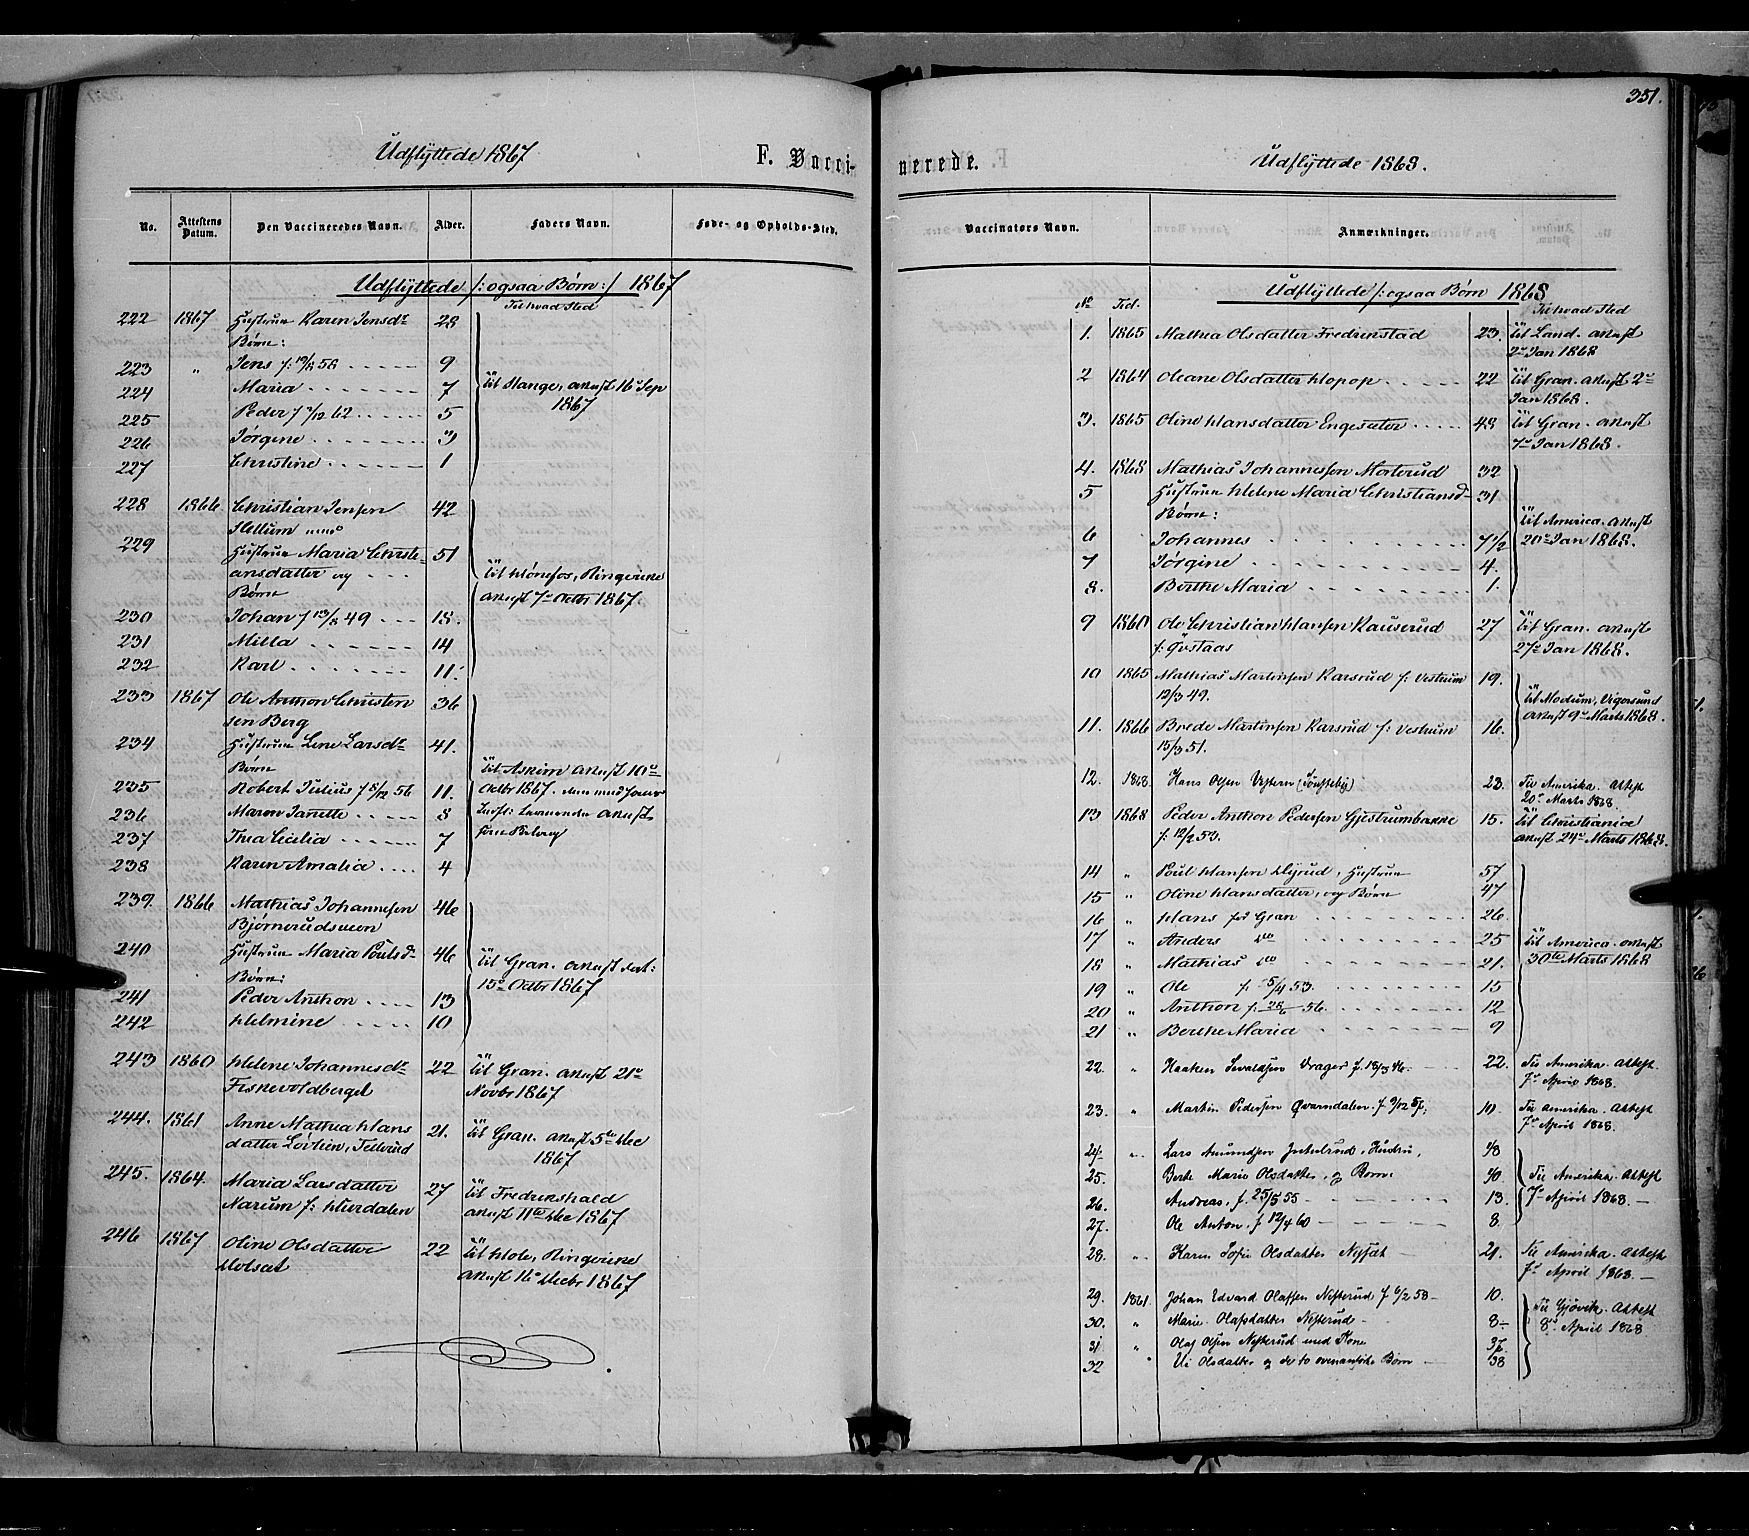 351.
Udflyttede 1867
F. Vacci-
nerede.
Udflyttede 1868.
No.
Attestens Datum.
Den Vaccineredes Navn.
Alder.
Faders Navn.
Føde- og Opholds-Sted.
Vaccinatørs Navn.
Anmærkninger.
Udflyttede /: ogsaa Børn :/ 1867
Til hvad Sted
222 1867 Hustrue Karen Jensdr 28
Børn:
223 " Jens f. 19/8 58 9
224 Maria 7 til Stange, attest 16 Sep
1867
225 Peder f 7/12 62 5
226 Jørgine 3
227 Christine 1
228 1866 Christian Jensen 42
Hellum med
229 Hustrue Maria Christi- 51
ansdatter og
Børn
til Hønefos, Ringerike
attest 7de Octbr 1867.
230 Johan f 13/8 49 18.
231 Milla 14
232 Karl 11.
233 1867 Ole Anthon Christen 36
sen Berg
234 Hustrue Lene Larsdr 41.
Børn
til Askim attest 10de
235 Robert Julius f 8/12 56 11. Octbr 1867.
236 Maren Janette 8
237 Thea Cecilia 7
238 Karen Amalia 4
239. 1866 Mathias Johannesen 46
Bjørnerudsveen
240 Hustrue Maria Poulsd- 46
Børn:
til Gran. attest dat:
15de Octbr 1867
241 Peder Anthon 13
242 Helmine 10
243 1860 Helene Johannesdr 22 til Gran. attest 21de
Fiskevoldberget Novbr 1867
244. 1861 Anne Mathea Hans 21. til Gran. attest 5te Dec
datter Lovlien, Teterud 1867
245. 1864 Maria Larsdatter 27 til Fredrikshald
Narum f: Hverdalen attest 11te Dec 1867
246 1867 Oline Olsdatter 22 til Hole, Ringerike
Holset attest 16 Decbr 1867
Udflyttede /: ogsaa Børn 1868
No Tid. Til hvad Sted
1. 1865 Mathea Olsdatter Fredrikstad 23. til Land. attest
2de Jan 1868
2 1864 Oleane Olsdatter Hopop 22 til Gran. attest 2de
Jan 1868.
3. 1865 Oline Hansdatter Engesæter 48 til Gran. attest
7de Jan 1868.
4. 1868 Mathias Johannessen Morterud 32
5 Hustrue Helene Maria Christiansd- 31
Børn:
til America. attest
20de Jan 1868.
6 Johannes 7 1/2
7 Jørgine 4.
8. Berthe Maria 1.
9 1860 Ole Christian Hansen Kauserud 27 til Gran. attest
f. Gustaas 27de Jan 1868.
10 1865 Mathias Martinsen Karsrud f: Vestrum 19.
12/3 49.
til Modum, Vigersund
attest 9de Marts 1868.
11. 1866 Brede Martinsen Karsrud f: Vestrum 16.
15/3 51.
12. 1868. Hans Olsen Vestern 23. Til Amerika. Attest
20de Marts 1868.
13 1868 Peder Anthon Pedersen Gjestrumbakke 15. til Christiania
f. 12/2 53. attest 24de Marts 1868.
14 " Poul Hansen Dyrud, Hustrue 57
15 " Oline Hansdatter, og Børn 47
16 " Hans fød Gran 26.
17 " Anders do 25 til America. attest
18 " Mathias do 21. 30te Marts 1868
19 " Ole f. 5/4 53. 15
20 " Anthon f. 28/6 56. 12
21 " Berthe Maria 9
22. " Haaken Sevaldsen Vrager f. 18/3 46. 22. Til Amerika. Attest.
7de April 1868.
23. " Martin Pedersen Qvarndalen. f 9/12 57. 10. Til Amerika. Attest
7de April 1868.
24. " Lars Amundsen, Hustru, 48
25. Berte Marie Olsdatter, og Børn: 40 Til Amerika. Attest
26. Andreas, f. 25/5 55 13. 7de April 1868.
27. Ole Anton, f 12/4 60 8.
28. " Karen Sofie Olsdatter 21. Til Amerika. Attest
7de April 1868.
29. 1861. Johan Edvard Olafsen Nesterud f 6/2 58 10.
30. " Marie Olafsdatter Nesterud 8 Til Gjøvik. Attest
31 " Olaf Olsen Nesterud med Kone 37. 8de April 1868
32 " Olsdatter og de to ovenanførte Børn 38